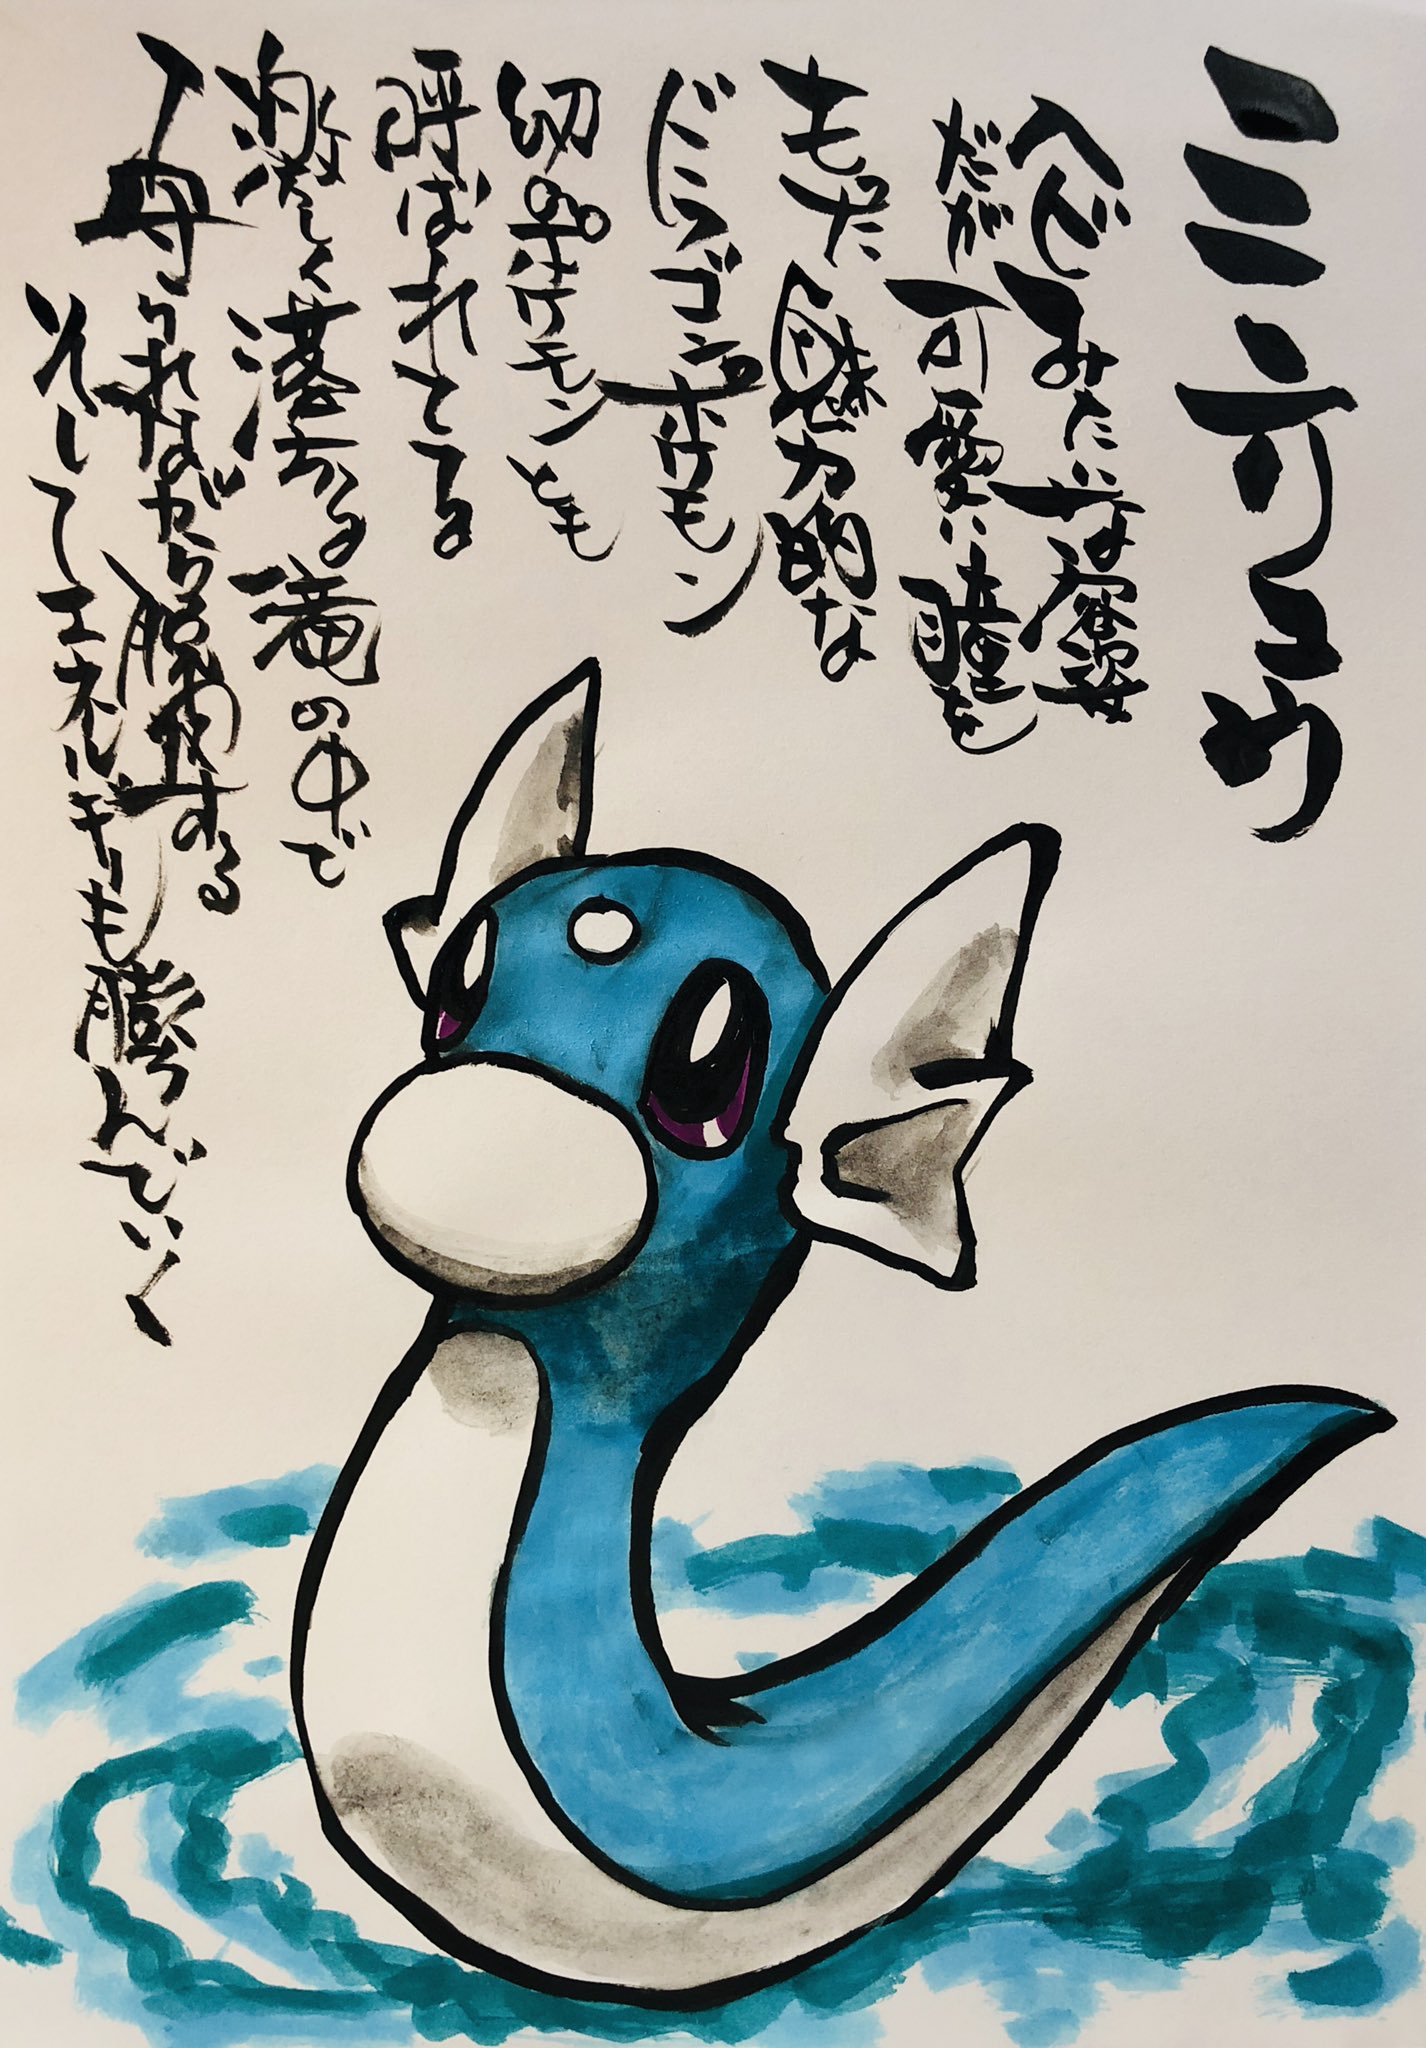 ミニリュウ
ヘビみたいな容姿
だが可愛い瞳を
もった魅力的な
ドラゴンポケモン
幻のポケモンとも
呼ばれてる
激しく落ちる滝の中で
られながら脱皮する
そしてエネルギーも膨らんでいく